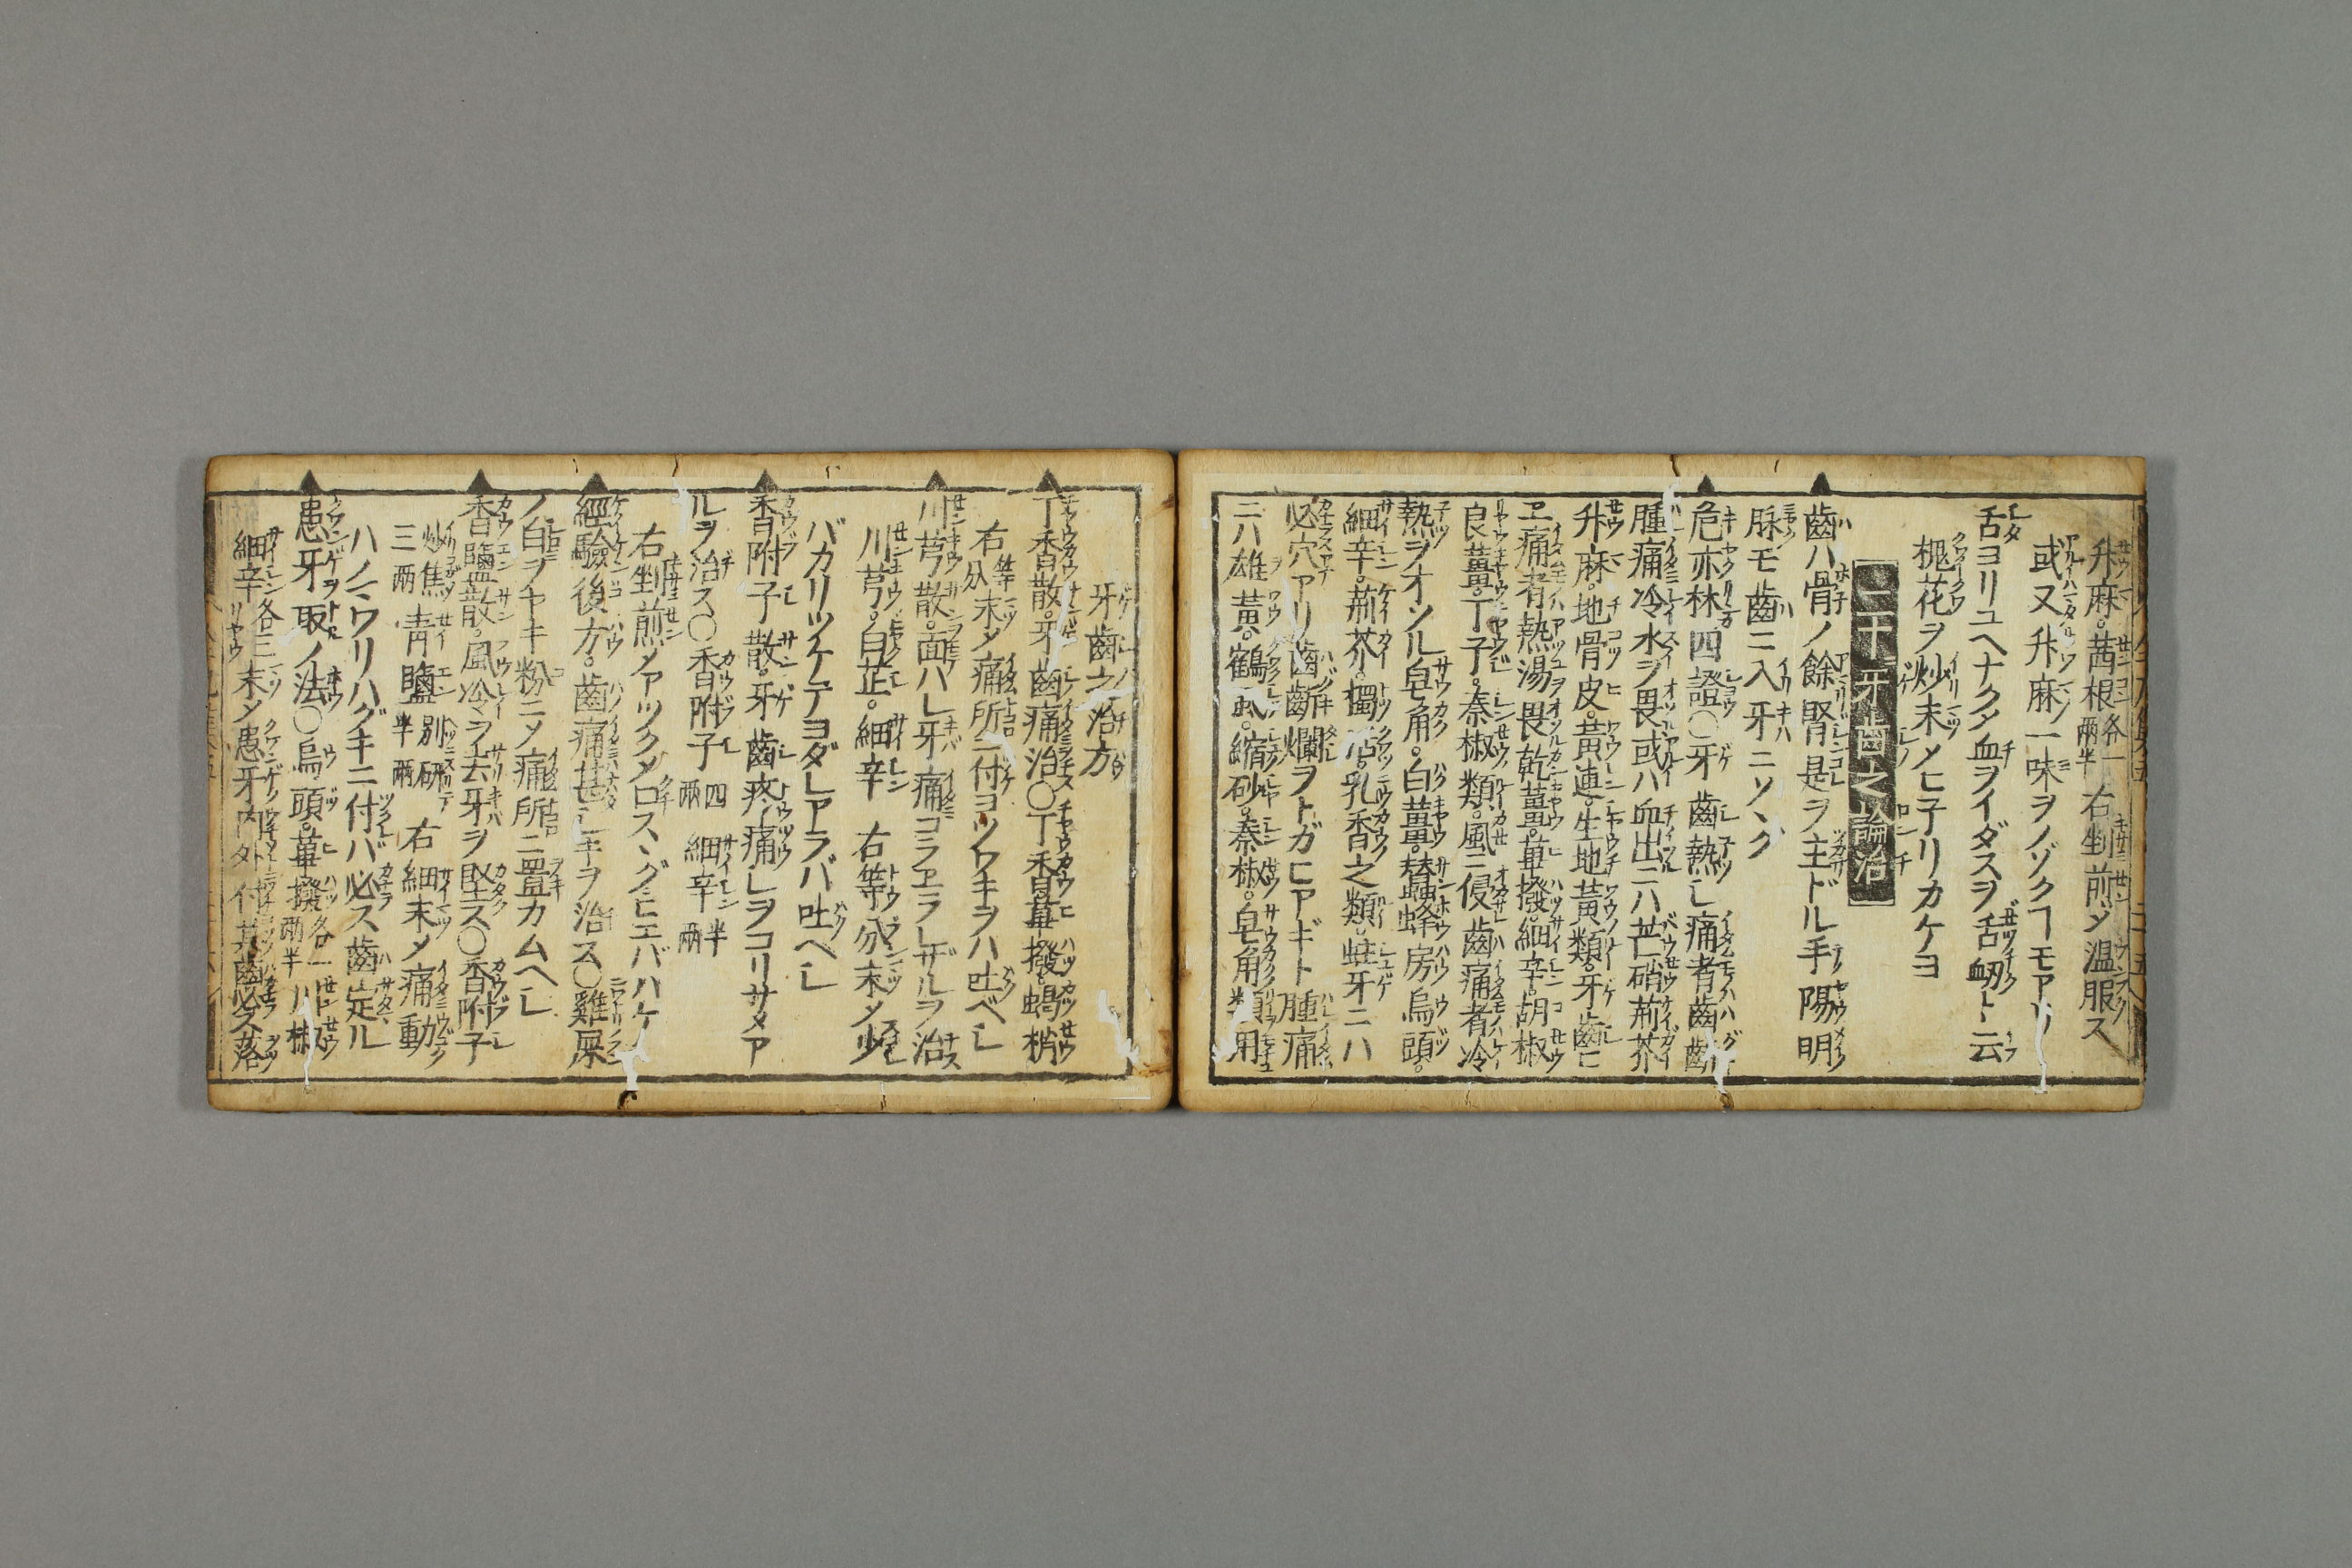 升麻。茜根各一兩半右剉煎〆温服ス
或又升麻一味ヲノゾクヿモアリ
舌ヨリユヘナクメ血ヲイダスヲ舌衂ト云
槐花ヲ炒末〆ヒ子リカケヨ
二十一牙齒之論治
齒ハ骨ノ餘腎是ヲ主ドル手陽明
脉モ齒ニ入牙ニソヽク
危亦林四證〇牙齒熱乄痛者齒齗
腫痛冷水ヲ畏或ハ血出ニハ芒硝荊芥
升麻。地骨皮。黃連。生地黃類。牙齒ヒ
ヱ痛者熱湯畏乾薑。蓽撥。細辛。胡椒
良薑。丁子。秦椒類。風ニ侵齒痛者冷
熱ヲオソル皂角。白薑。蜂房烏頭。
細辛。荊芥。獨活。乳香之類。蛀牙ニハ
必穴アリ齒齗爛ヲトガヒアギト腫痛
ニハ雄黃。鶴虱。縮砂。秦椒。皂角類用
牙齒之治方
丁香散。牙齒痛治〇丁香蓽撥。蝎梢
右等分末〆痛所ニ付ヨツワキヲハ吐ベシ
川芎散。面ハレ牙痛コラヱラレザルヲ治
川芎。白芷。細辛 右等分末〆少
バカリツケテヨダレアラバ吐ヘシ
香附子散。牙齒疼痛シヲコリサメア
ルヲ治ス〇香附子四兩 細辛半兩
右剉煎〆アツクメロスヽグヒエバハケ
經驗後方。齒痛甚シキヲ治ス〇雞屎
ノ白ヲヤキ粉ニ〆痛所ニ置カムヘシ
香鹽散。風冷ヲ去牙ヲ堅ス〇香附子
炒焦三兩 靑鹽別研半兩 右細末〆痛動
ハノニワリハグキニ付ツクレバ必ス齒定ル
患牙取ノ法〇烏頭。蓽撥各一兩半川椒
細辛各三兩末〆患牙內外付其齒必ス落